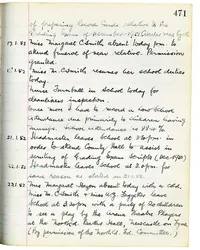 471
of preparing Record Cards relative to the
19.1.82 Miss Margaret C. Smith absent today p.m. to
attend funeral of near relative. Permission
granted.
Miss M. C. Smith resumes her school duties
today.
Nurse Turnbull in school today for
cleanliness inspection.
Once more I have to record a low school
attendance due primarily to children having
mumps. School attendance is
21.1.82 Headmaster leaves School at 3.0 pm in
order to attend County Hall to assist in
grading of
22.1.82 Headmaster leaves School at 2.30 pm for
same reason as stated in 21.1.82.
Miss Margaret absent today with a cold.
Miss M. C. Smith & Miss
School at 3.30 pm with a party of 20 children
to see a play by the Theatre Players
at the Hall, Newcastle on Tyne
(By permission of the North'ld. Ed. Committee.)